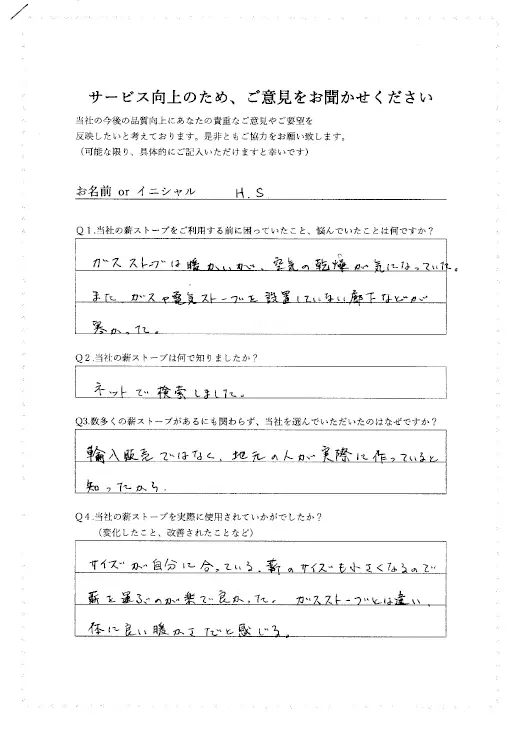 サービス向上のため、ご意見をお聞かせください
当社の今後の品質向上にあなたの貴重なご意見やご要望を
反映したいと考えております。是非ともご協力をお願い致します。
（可能な限り、具体的にご記入いただけますと幸いです）
お名前 or イニシャル H.S
Q１.当社の薪ストーブをご利用する前に困っていたこと、悩んでいたことは何ですか？
ガスストーブは暖かいが、空気の乾燥が気になっていた。
また ガスや電気ストーブを設置していない廊下などが
寒かった。
Q２.当社の薪ストーブは何で知りましたか？
ネットで検索しました。
Q3.数多くの薪ストーブがあるにも関わらず、当社を選んでいただいたのはなぜですか？
輸入販売ではなく、地元の人が実際に作っていると
知ったから.
Q４.当社の薪ストーブを実際に使用されていかがでしたか？
（変化したこと、改善されたことなど）
サイズが自分に合っている、薪のサイズも小さくなるので
薪を運ぶのが楽で良かった。 ガスストーブとは違い、
体に良い暖かさだと感じる。